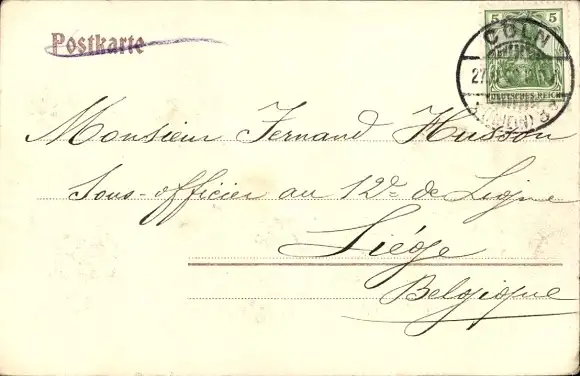 5 5
CÖLN
Postkarte
27.
DEUTSCHES REICH
Monsieur Fernand Husson
Sous-officier au 12e de Ligne
Liége
Belgique